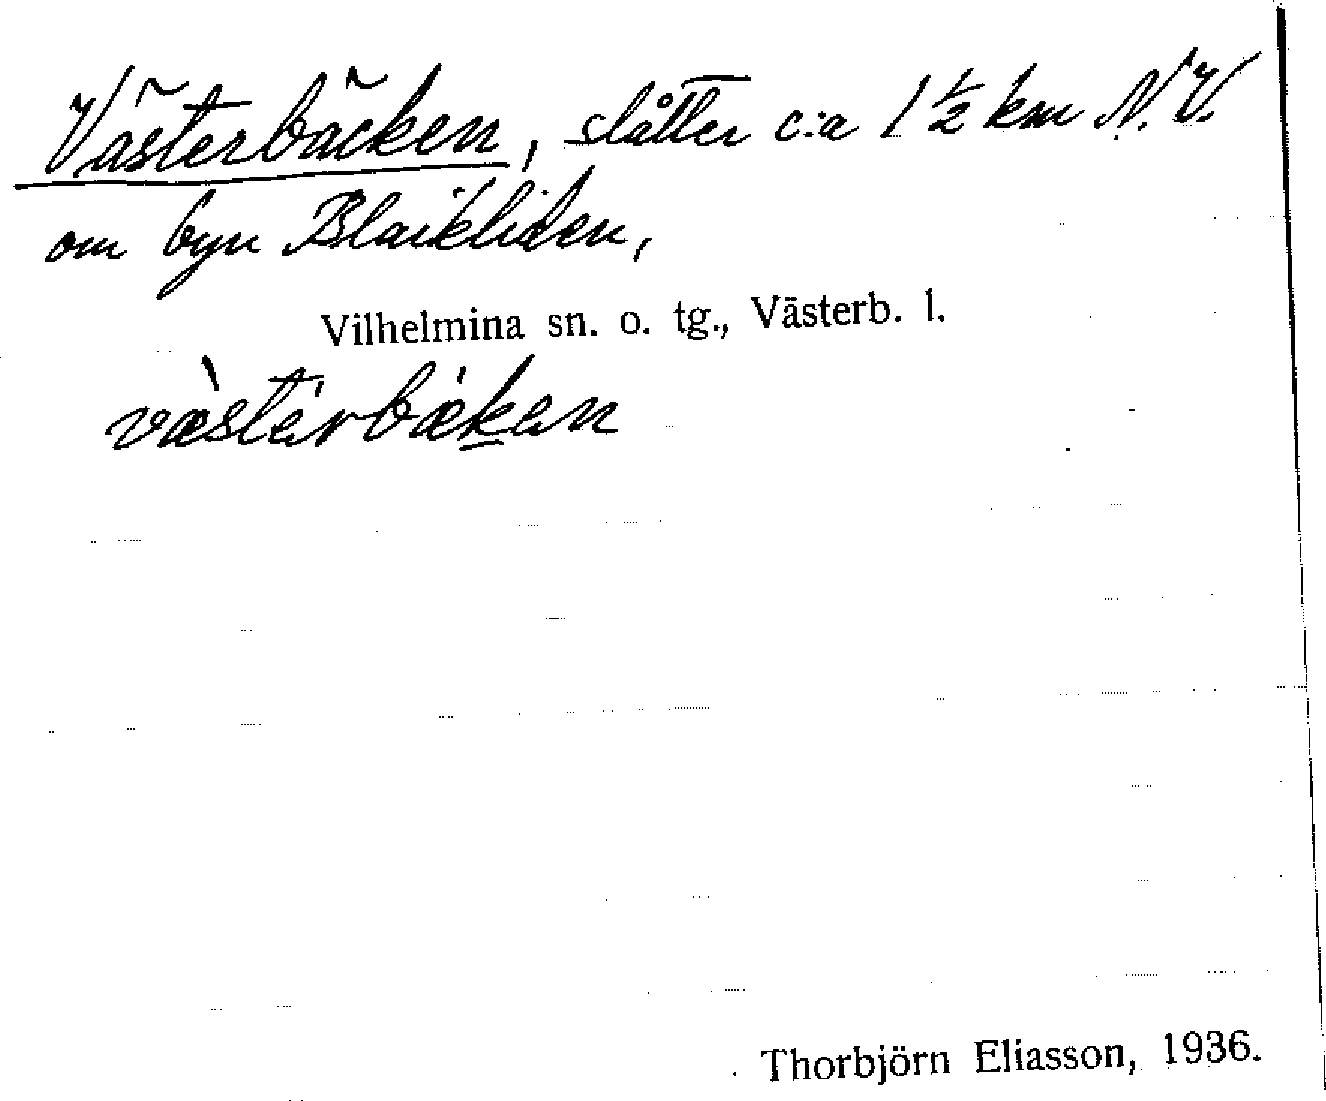 Västerbäcken, slåtter c:a 1 ½ km N.V.
om byn Blaikliden,
Vilhelmina sn. o. tg., Västerb. l.
væ̀stárbǽkan
Thorbjörn Eliasson, 1936.